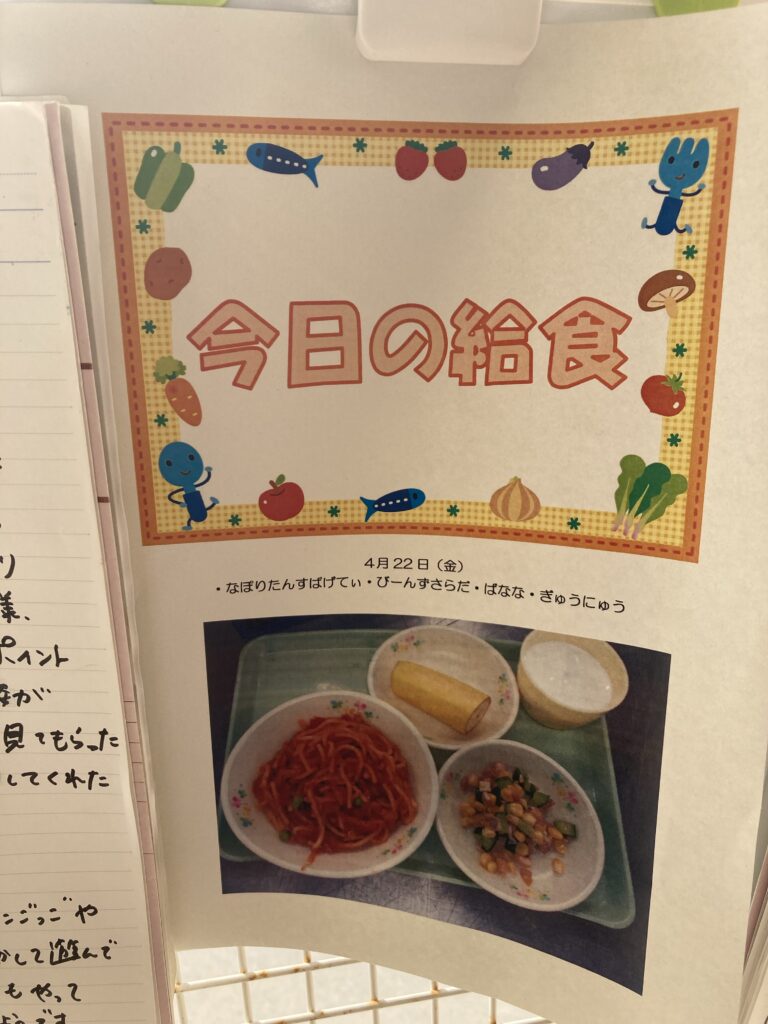 今日の給食
4月22日（金）
・なぽりたんすぱげてぃ・びーんずさらだ・ばなな・ぎゅうにゅう
り
様、
ポイント
が
見てもらった
してくれた
ンごっこや
かして遊んで
もやって
ようです